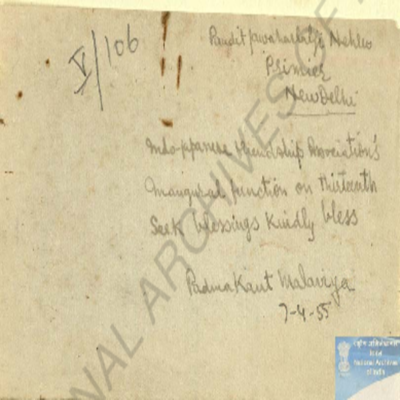 V/106
Pandit Jawaharlalji Nehru
Premier
New Delhi
Indo-Japanese Friendship Association's
Inaugural function on Thirteenth
Seek blessings Kindly bless
Padma Kant Malaviya
7-4-55
NAL ARCHIVES OF